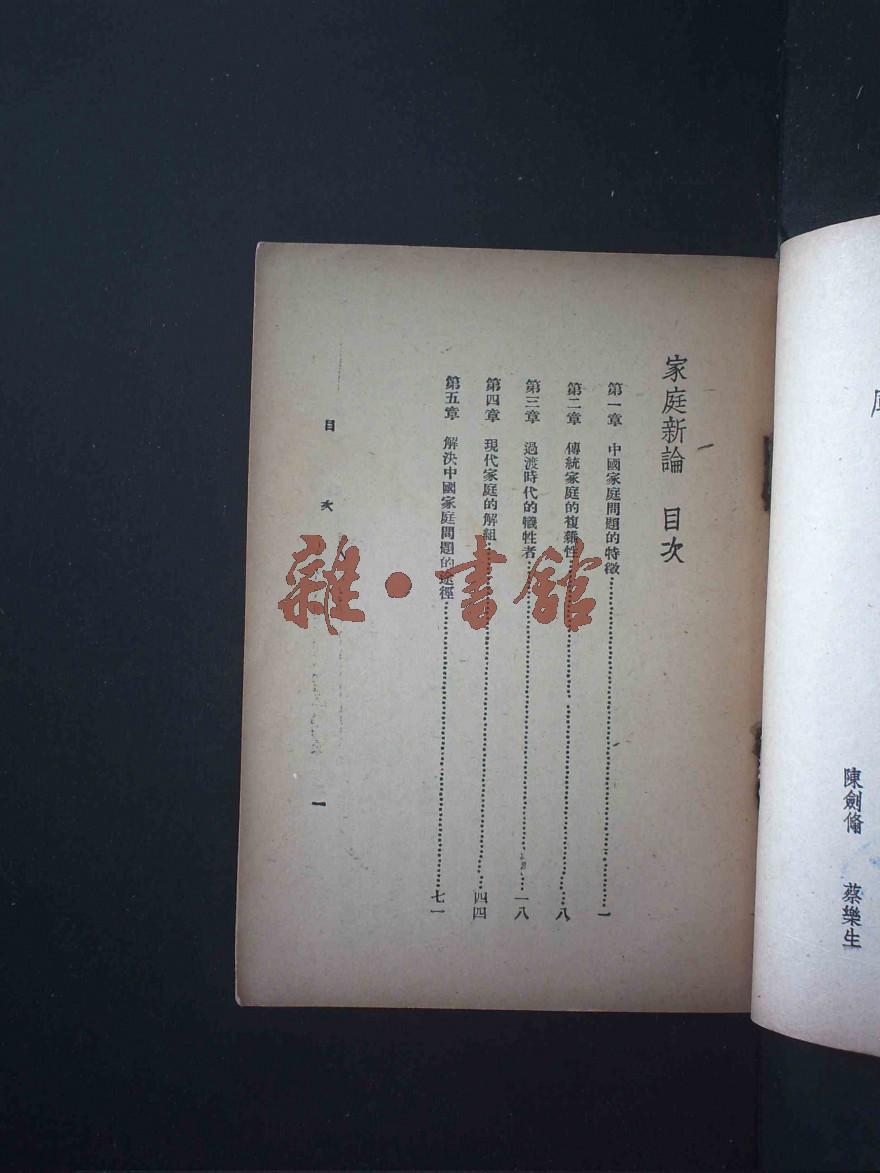 陳劍翛 蔡樂生
家庭新論 目次
第一章 中國家庭問題的特徵……一
第二章 傳統家庭的複雜性……八
第三章 過渡時代的犧牲者……一八
第四章 現代家庭的解組……四四
第五章 解決中國家庭問題的途徑……七一
目次 一
雜·書館